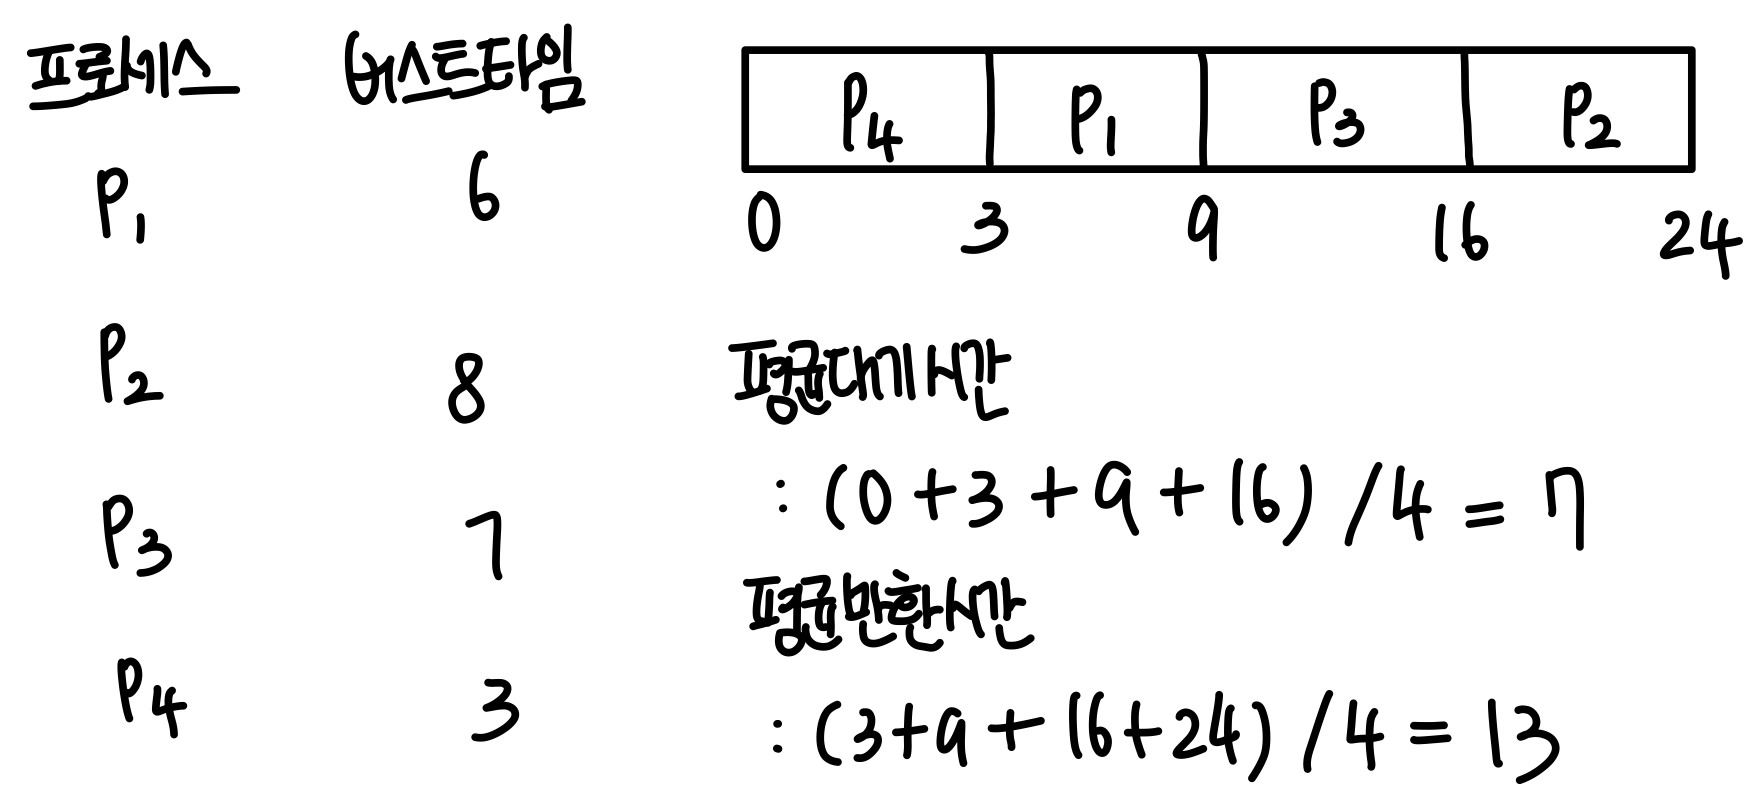 프로세스 버스트타임
P1 6
P2 8
P3 7
P4 3
P4 P1 P3 P2
0 3 9 16 24
평균대기시간
: (0+3+9+16)/4=7
평균반환시간
: (3+9+16+24)/4=13